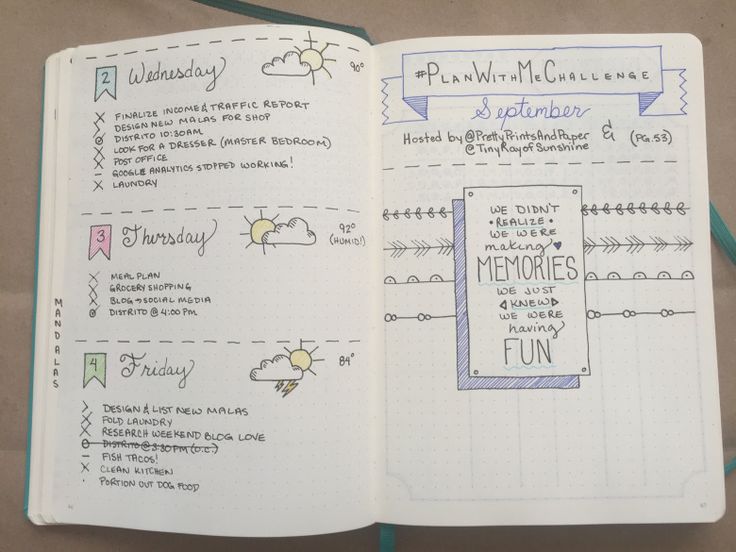 2 Wednesday
90°
X FINALIZE INCOME & TRAFFIC REPORT
> DESIGN NEW MALAS FOR SHOP
DISTRITO 10:30AM
X LOOK FOR A DRESSER (MASTER BEDROOM)
X POST OFFICE
– GOOGLE ANALYTICS STOPPED WORKING!
X LAUNDRY
3 Thursday
92°
(HUMID!)
X MEAL PLAN
X GROCERY SHOPPING
X BLOG → SOCIAL MEDIA
DISTRITO @ 4:00 PM
MANDALAS
4 Friday
84°
> DESIGN & LIST NEW MALAS
X FOLD LAUNDRY
X RESEARCH WEEKEND BLOG LOVE
DISTRITO @ 3:30 PM (O.C.)
– FISH TACOS!
X CLEAN KITCHEN
· PORTION OUT DOG FOOD
#PLANWITHMECHALLENGE
September
Hosted by @PrettyPrintsAndPaper &
@TinyRayofSunshine
(PG.53)
WE DIDN'T
•REALIZE•
WE WERE
making
MEMORIES
WE JUST
KNEW
WE WERE
having
FUN